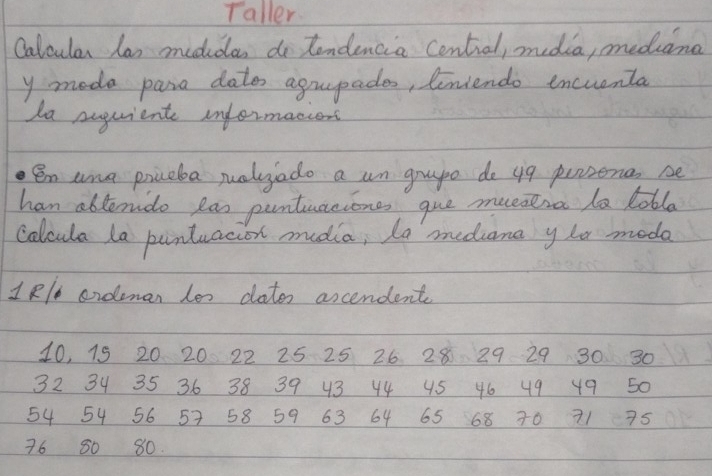 Taller
Calcular las medidas de tendencia central, media, mediana
y moda para datos agrupados, teniendo encuenta
la siguiente informacion
• En una prueba realizado a un grupo de 49 personas se
han obtenido las puntuaciones que muestra la tabla
Calcula la puntuación media, la mediana y la moda
1 R/. ordenar los datos ascendente
10, 15 20 20 22 25 25 26 28 29 29 30 30
32 34 35 36 38 39 43 44 45 46 49 49 50
54 54 56 57 58 59 63 64 65 68 70 71 75
76 80 80.